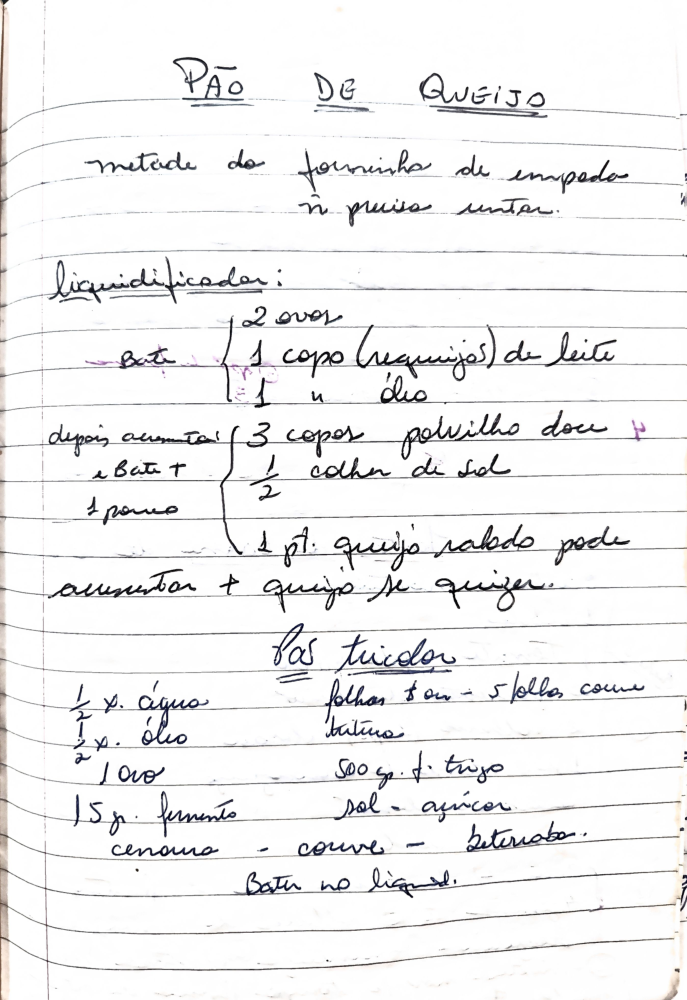 PÃO DE QUEIJO
metade da forminha de empada
ñ precisa untar.
liquidificador:
2 ovos
Bate 1 copo (requeijão) de leite
1 " óleo
depois acrescenta: 3 copos polvilho doce
e Bate + 1/2 colher de sal
1 pouco
1 pt. queijo ralado pode
acrescentar + queijo se quizer.
Pão tricolor
1/2 x. água folhas - 5 folhas couve
1/2 x. óleo
1 ovo 500 gr. f. trigo
15 gr. fermento sal - açúcar
cenoura - couve - beterraba.
Bater no liquid.